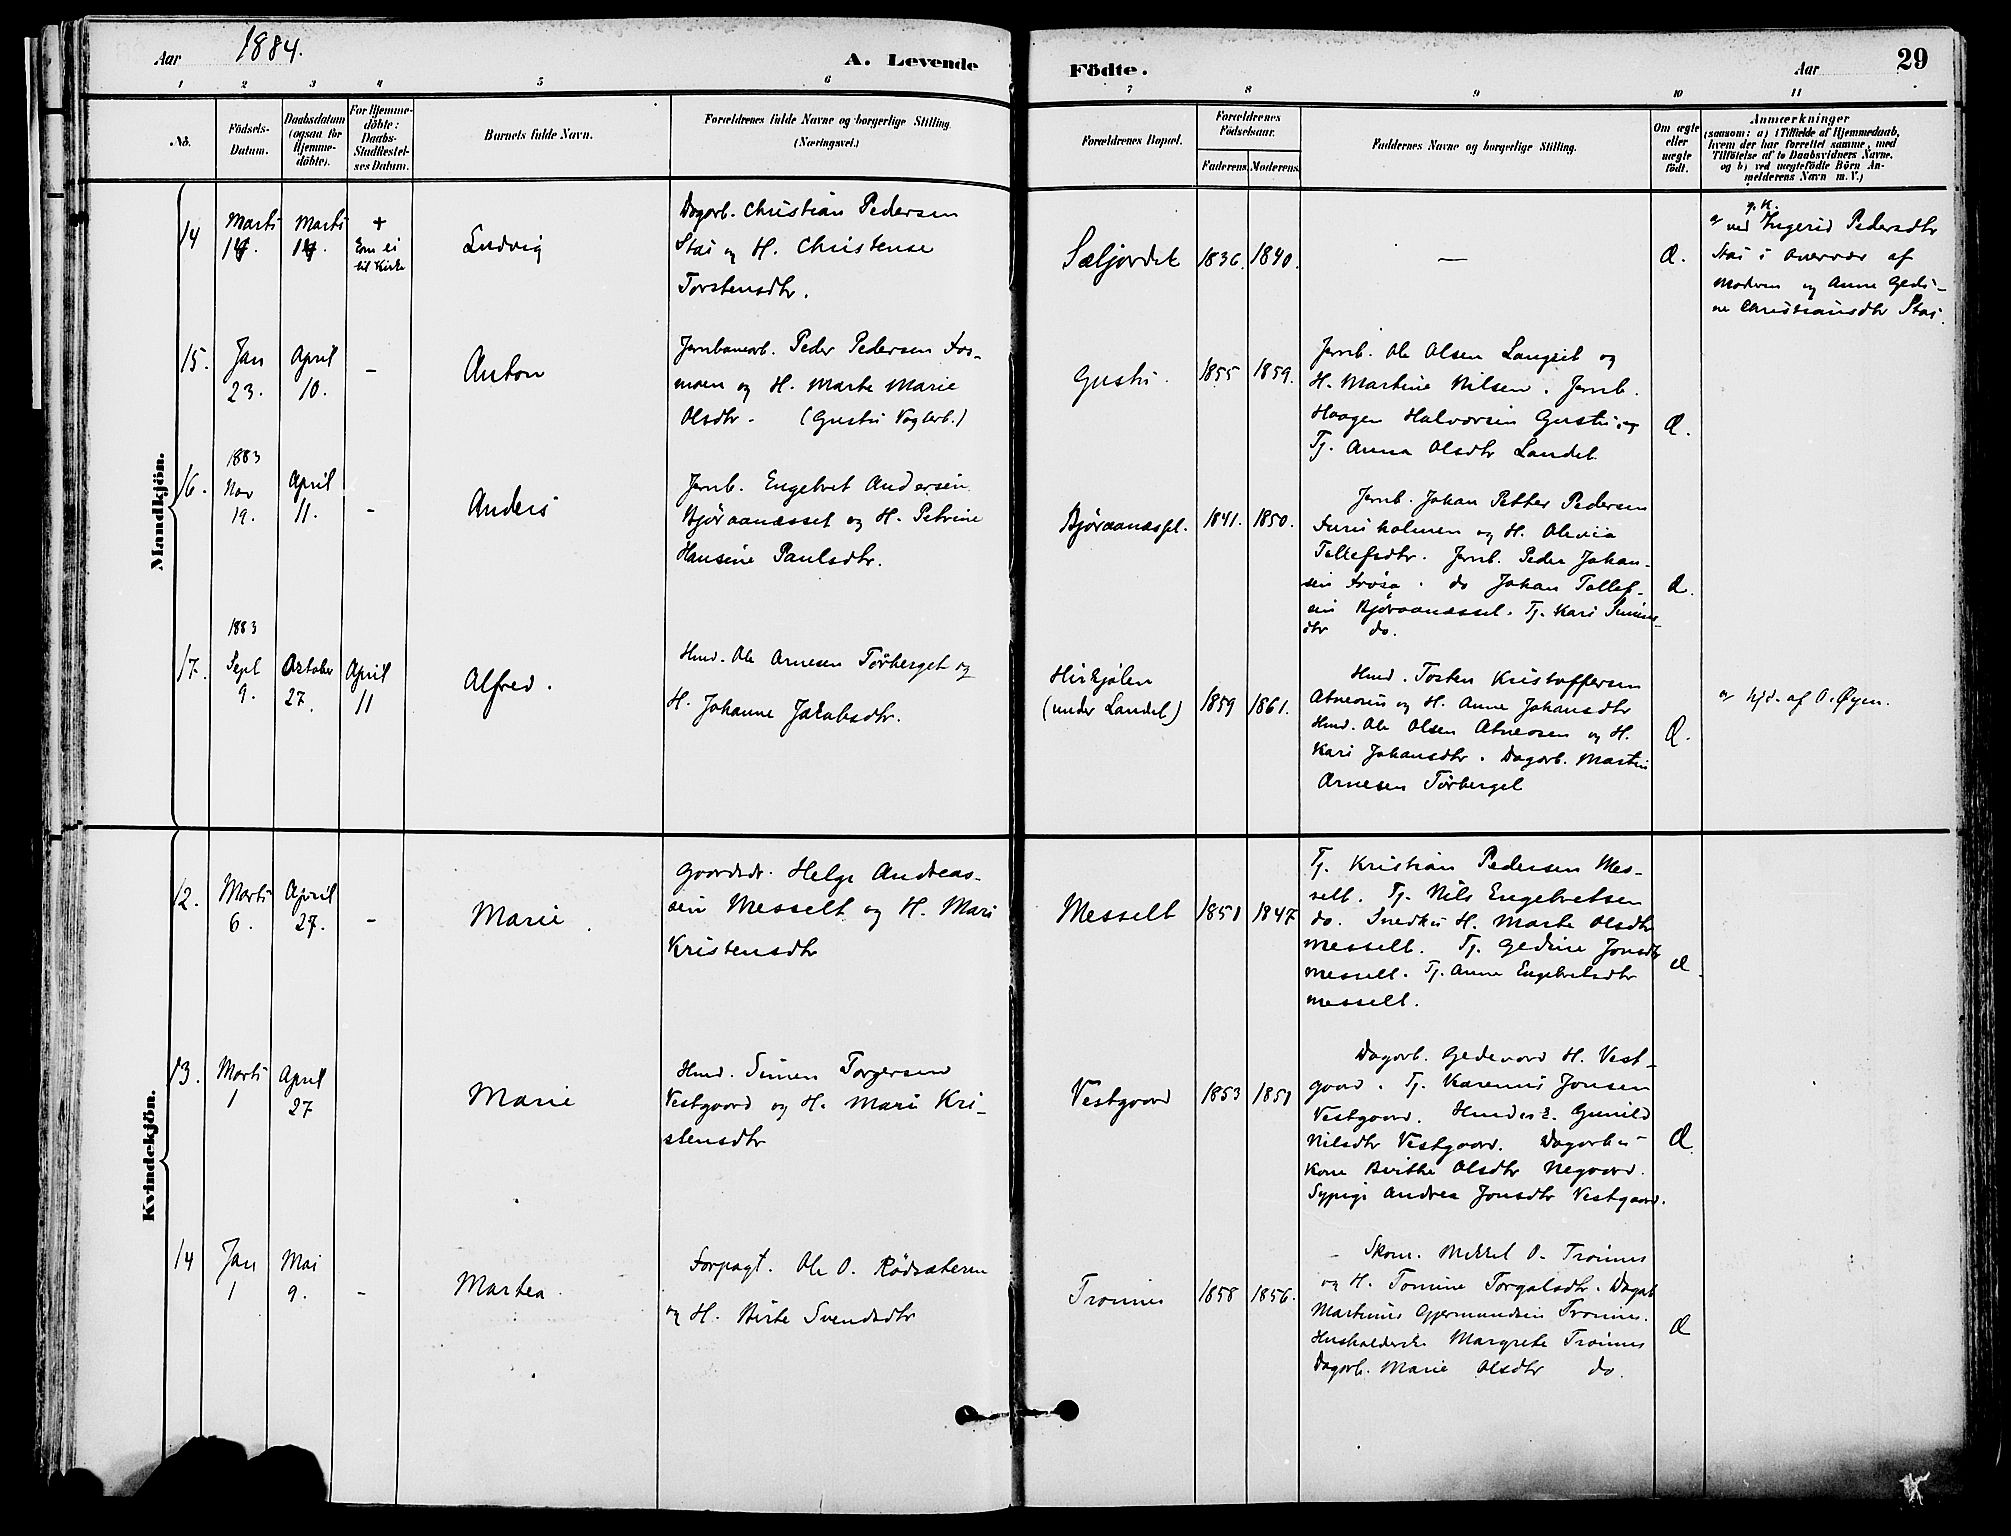 Aar 1884.
A. Levende
Födte.
Aar
29
1 2 3 4 5 6 7 8 9 10 11
No.
Födsels-
Datum.
Daabsdatum
(ogsaa for
Hjemme-
döbte).
For Hjemme-
döbte:
Daabs-
Stadfæstel-
ses Datum.
Barnets fulde Navn.
Forældrenes fulde Navne og borgerlige Stilling.
(Næringsvei.)
Forældrenes Bopæl.
Forældrenes
Födselsaar.
Faderens. Moderens.
Faddernes Navne og borgerlige Stilling.
Om ægte
eller
uægte
født.
Anmærkninger
(saasom: a) i Tilfælde af Hjemmedaab,
hvem der har forrettet samme, med
Tilföielse af to Daabsvidners Navne,
og b) ved uægtefödte Börn An-
melderens Navn m. V.)
Mandkjön.
14
Marts
14.
Marts
14.
+
Kom ei
til Kirke
Ludvig
Dagarb. Christian Pedersen
Stai og H. Christense
Torstensdtr.
Sæljordet
1836.
1840.
—
Æ.
g. k.
a ved Ingerid Pedersdtr
Stai i Overvær af
Moderen og Anne Gedi-
ne Christiansdtr Stai.
15.
Jan
23.
April
10.
-
Anton
Jernbanearb. Peder Pedersen Fos-
moen og H. Marte Marie
Olsdtr. (Gusti Vogterb.)
Gusti.
1855
1859.
Jernb. Ole Olsen Langeit og
H. Martine Nilsen. Jernb.
Haagen Halvorsen Gusti og
Tj. Anna Olsdtr Landet
Æ.
16.
1883
Nov
19.
April
11.
-
Anders
Jernb. Engebret Andersen
Bjøraanæsset og H. Petrine
Hansine Paulsdtr.
Bjøraanæsset.
1841.
1850.
Jernb. Johan Petter Pedersen
Furuholmen og H. Olevia
Tollefsdtr. Jernb. Peder Johan-
sen Frøsø. do Johan Tollef-
sen Bjøraanæsset. Tj. Kari Simens-
dtr do.
Æ.
17.
1883
Sept
9.
October
27.
April
11
Alfred.
Hmd. Ole Arnesen Tørberget og
H. Johanne Jakobsdtr.
Hirkjølen
(under Landet)
1859
1861.
Hmd. Tosten Kristoffersen
Atneosen og H. Anne Johansdtr
Hmd. Ole Olsen Atneosen og H.
Kari Johansdtr. Dagarb. Martin
Arnesen Tørberget
Æ.
a Hjd. af O. Øyen.
Kvindekjön.
12.
Marts
6.
April
27.
-
Marie.
Gaardbr. Helge Andreas-
sen Messelt og H. Mari
Kristensdtr
Messelt
1851
1847
Tj. Kristian Pedersen Mes-
selt. Tj. Nils Engebretsen
do. Snedker H. Marte Olsdtr
Messelt. Tj. Gedine Jonsdtr
Messelt. Tj. Anne Engebretsdtr
Messelt.
Æ.
13.
Marts
1
April
27
Marie
Hmd. Simen Torgersen
Vestgaard og H. Mari Kri-
stensdtr
Vestgaard
1853
1851
Dagarb. Gedevard H. Vest-
gaard. Tj. Karenus Jonsen
Vestgaard. Gunild
Nilsdtr Vestgaard. Dagarbei-
Kone Berthe Olsdtr Negaard.
Sypige Andrea Jonsdtr Vestgaard.
Æ.
14
Jan
1
Mai
9.
-
Martea.
Forpagt. Ole O. Rødsæteren
og H. Birte Svendsdtr
Trønnes
1858
1856.
Skom. Mikkel O. Trønnes
og H. Tomine Torgalsdtr. Dagarb
Martinus Gjermundsen Trønnes.
Husholderske Margrete Trønnes
Dagarb. Marie Olsdtr do.
Æ